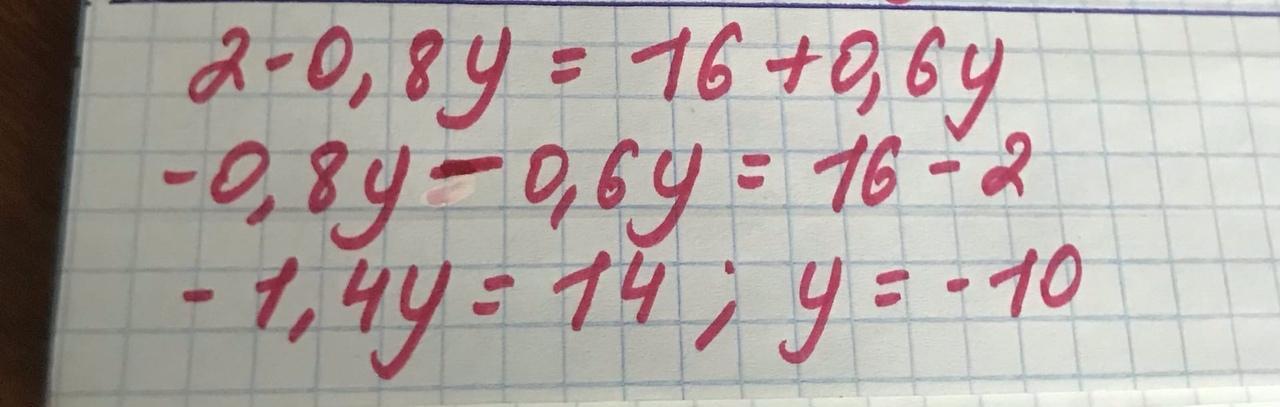 2-0,8y = 16+0,6y
-0,8y-0,6y = 16-2
-1,4y = 14; y = -10